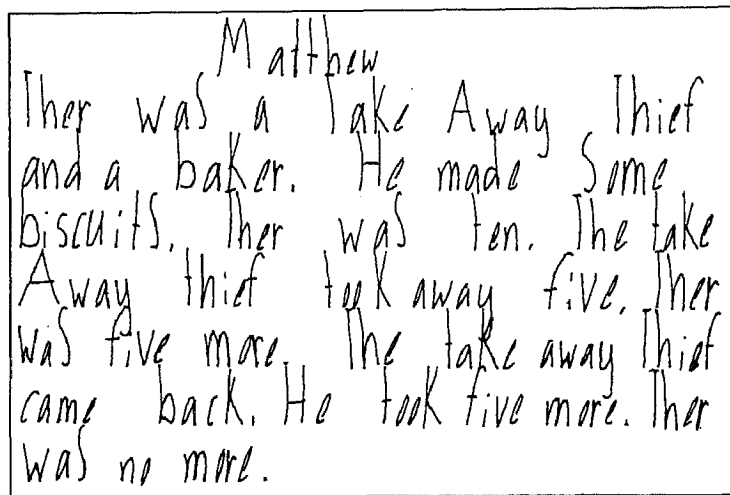 Matthew
Ther was a Take Away Thief
and a baker. He made Some
biscuits. Ther was ten. The take
Away thief took away five. Ther
was five more The take away Thief
came back. He took five more. Ther
was no more.